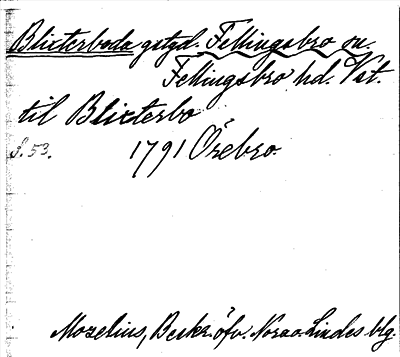 Blixterboda gstgd. Fellingsbro sn.
Fellingsbro hd. Vst.
til Blixterbo
S. 53. 1791 Örebro.
Mozelius, Beskr. öfv. Nora o Lindes blg.